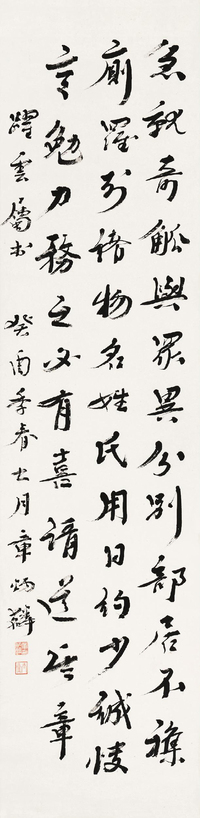 急就奇觚與眾異分別部居不襍
廁羅列諸物名姓氏用日約少誠快
意勉力務之必有喜請道其章
躍雲屬書 癸酉季春之月章炳麟